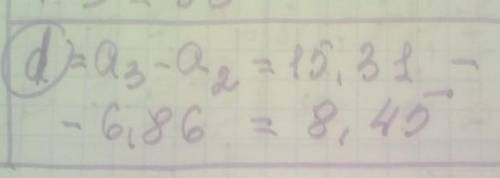 d = a₃ - a₂ = 15,31 -
- 6,86 = 8,45